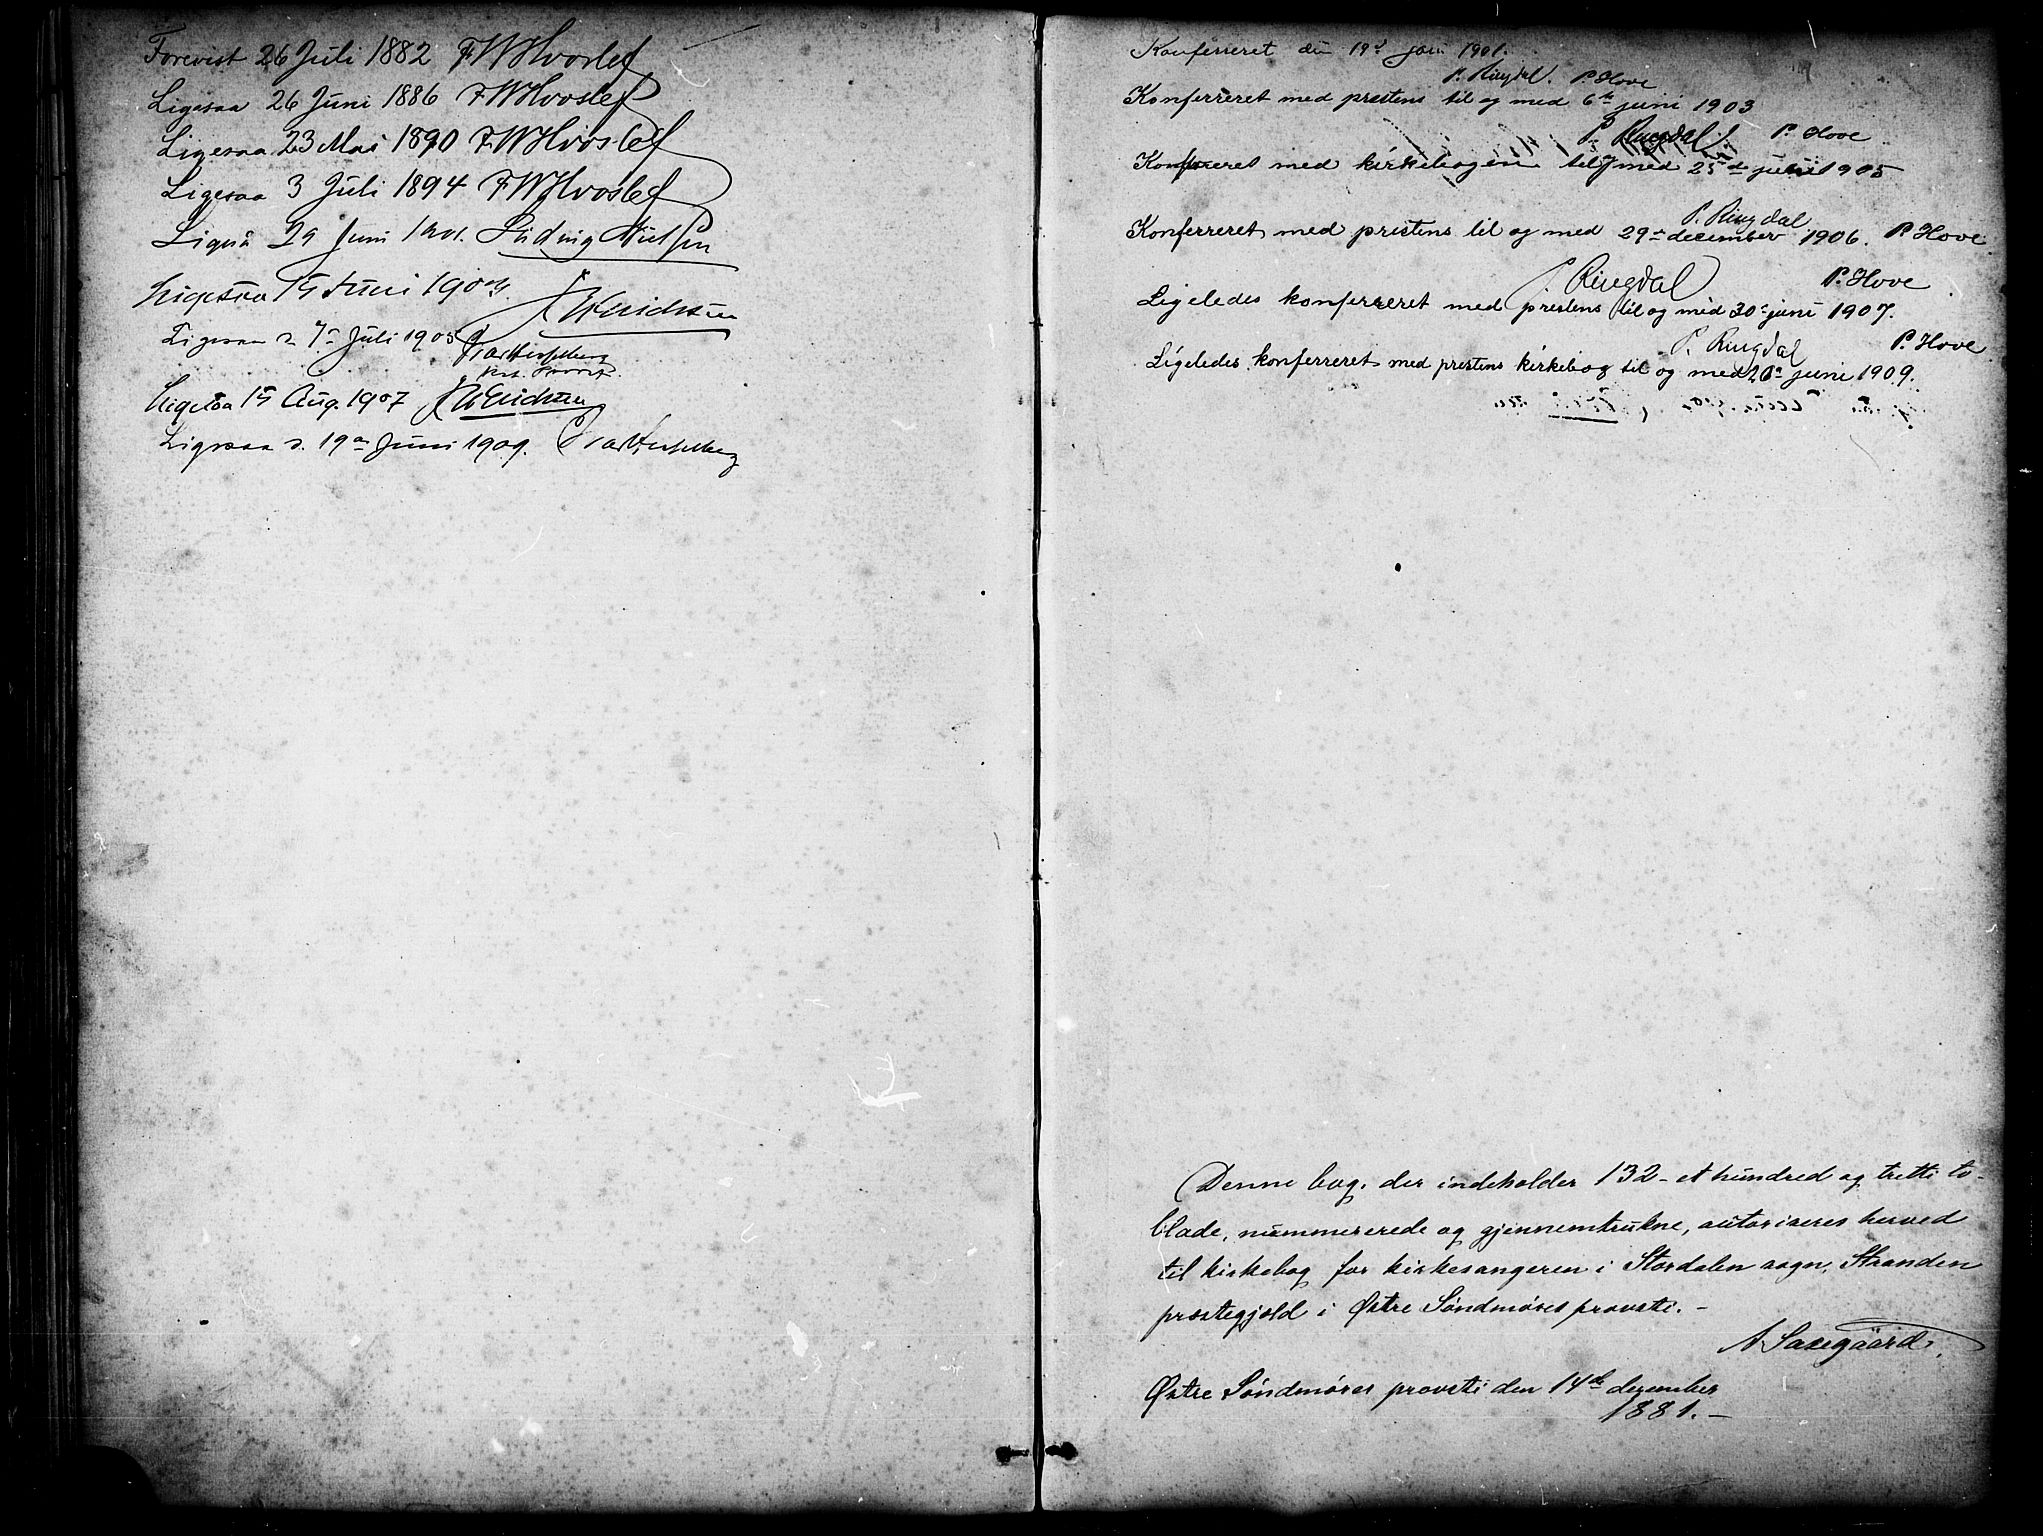 Forevist 26 Juli 1882 FWHvoslef
Ligesaa 26 Juni 1886 FWHvoslef
Ligesaa 23 Mai 1890 FWHvoslef
Ligesaa 3 Juli 1894 FWHvoslef
Ligeså 29 Juni 1901. Ludvig Nielsen
Ligesaa 15 Juni 1904
Ligesaa d 7de Juli 1905
Ligesaa 15 Aug. 1907
Ligesaa d. 19de Juni 1909.
Konfereret den 19d juni 1901.
P. Ringdal. P. Hove
Konferreret med prestens til og med 6te juni 1903
P. Ringdal P. Hove
Konfereret med kirkebogen til og med 25de juni 1905
P. Ringdal P. Hove
Konferreret med prestens til og med 29de december 1906.
P. Ringdal P. Hove
Ligeledes konferreret med prestens til og med 30te juni 1907.
P. Ringdal P. Hove
Ligeledes konferreret med prestens kirkebog til og med 20de juni 1909.
Denne bog, der indeholder 132 - et hundred og tretti to -
blade, nummererede og gjennemtrukne, autoriseres herved
til kirkebog for kirkesangeren i Stordalen sogn, Stranden
prestegjeld i Østre Søndmøres provsti. -
A Saxegaard.
Østre Søndmøres provsti den 14de december
1881. -